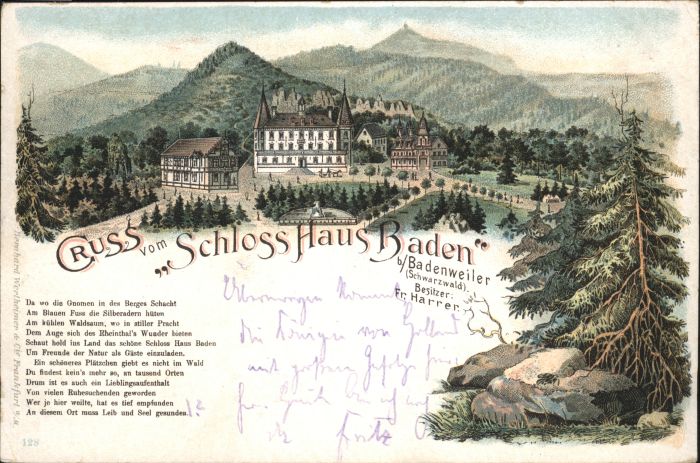 GRUSS vom „Schloss Haus Baden"
b/Badenweiler
(Schwarzwald).
Besitzer:
Fr. Harrer.
Da wo die Gnomen in des Berges Schacht
Am Blauen Fuss die Silberadern hüten
Am kühlen Waldsaum, wo in stiller Pracht
Dem Auge sich des Rheinthal's Wunder bieten
Schaut hold ins Land das schöne Schloss Haus Baden
Um Freunde der Natur als Gäste einzuladen.
Ein schöneres Plätzchen giebt es nicht im Wald
Du findest kein's mehr so, an tausend Orten
Drum ist es auch ein Lieblingsaufenthalt
Von vielen Ruhesuchenden geworden
Wer je hier weilte, hat es tief empfunden
An diesem Ort muss Leib und Seel gesunden.
Übermorgen kommt
die Königin von Holland
mit großem Gefolge
Fritz
128